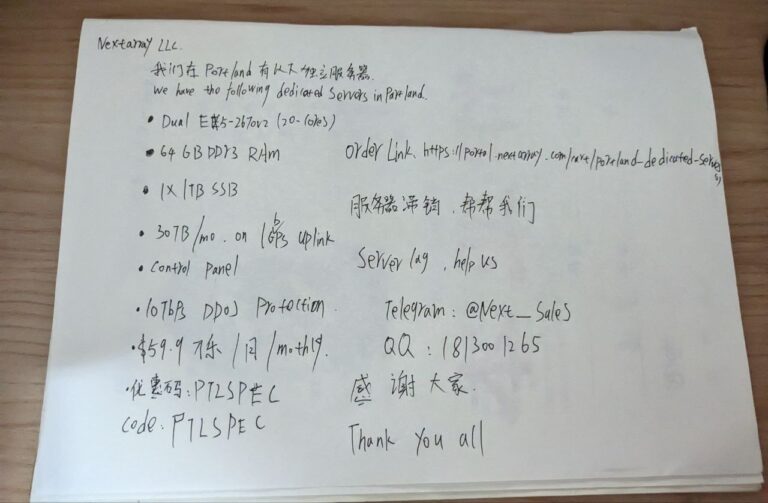 Nextarray LLC.
我们在 Portland 有以下独立服务器.
We have the following dedicated Servers in Portland.
• Dual E5-2670v2 (20-cores)
• 64 GB DDR3 RAM
• 1X 1TB SSB
• 30TB/mo. on 1Gbps uplink
• Control panel
• 10Tbps DDoS Protection.
• $59.9 /月/mothly.
• 优惠码: PTLSPEC
Code: PTLSPEC
Order Link. https://portal.nextarray.com/cart/portland_dedicated-servers/
服务器滞销, 帮帮我们
Server lag, help us
Telegram: @Next_Sales
QQ: 1813001265
感谢大家.
Thank you all